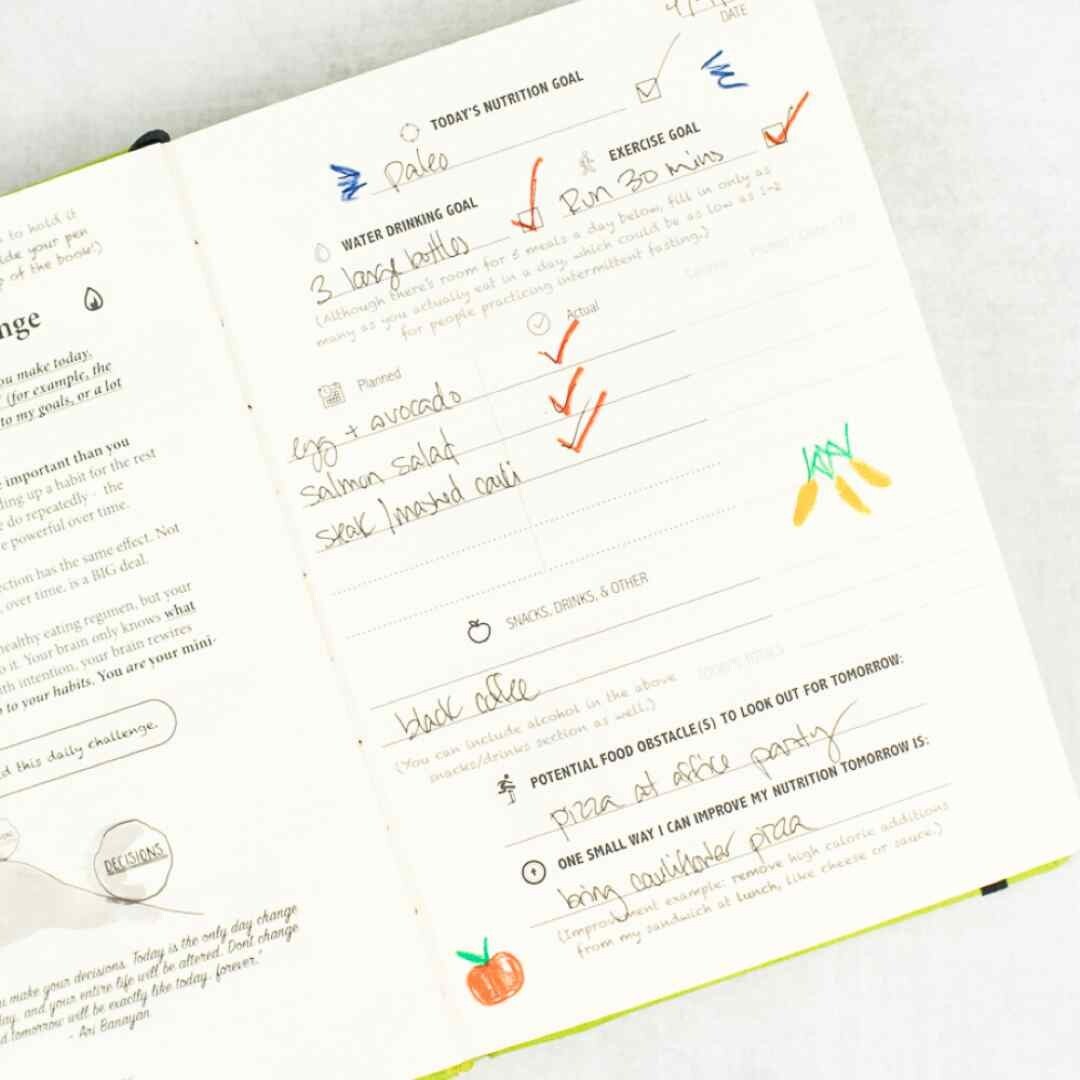 to hold it
your pen
of the book!)
you make today.
(for example, the
to my goals, or a lot
important than you
up a habit for the rest
do repeatedly - the
powerful over time.
has the same effect. Not
over time, is a BIG deal.
healthy eating regimen, but your
to it. Your brain only knows what
intention, your brain rewires
to your habits. You are your mini-
this daily challenge.
DECISIONS
make your decisions. Today is the only day change
and your entire life will be altered. Don't change
tomorrow will be exactly like today, forever."
- Ari Banayan
DATE
TODAY'S NUTRITION GOAL
Paleo
WATER DRINKING GOAL
3 large bottles
EXERCISE GOAL
Run 30 mins
(Although there's room for 5 meals a day below, fill in only as
many as you actually eat in a day, which could be as low as 1-2
for people practicing intermittent fasting.)
Planned
Actual
egg + avocado
salmon salad
steak / mashed cauli
SNACKS, DRINKS, & OTHER
black coffee
TODAY'S TOTALS
(You can include alcohol in the above
snacks/drinks section as well.)
POTENTIAL FOOD OBSTACLE(S) TO LOOK OUT FOR TOMORROW:
pizza at office party
ONE SMALL WAY I CAN IMPROVE MY NUTRITION TOMORROW IS:
bring cauliflower pizza
(Improvement example: remove high calorie additions
from my sandwich at lunch, like cheese or sauce.)